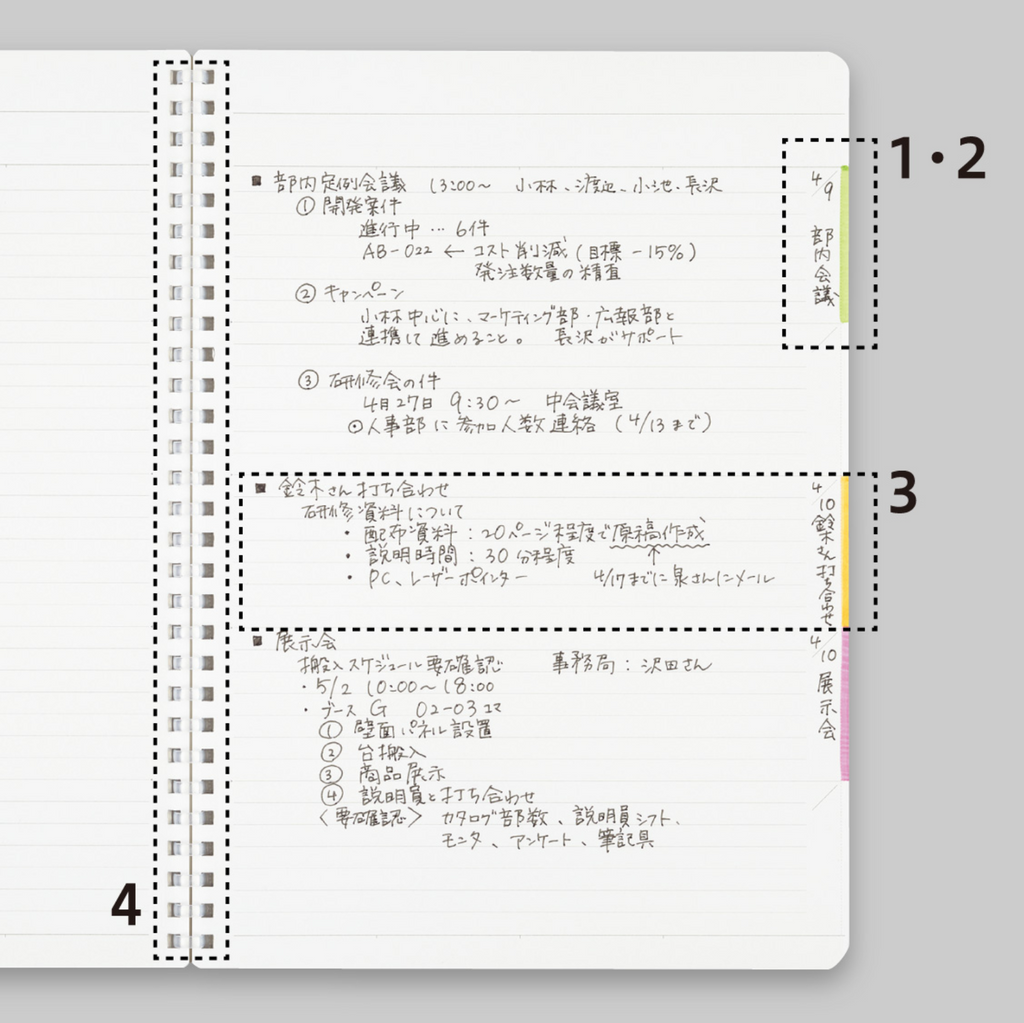 1・2
■ 部内定例会議 13:00〜 小林、渡辺、小池、長沢
① 開発案件
進行中 … 6件
AB-022 ← コスト削減 (目標 -15%)
発注数量の精査
② キャンペーン
小林中心に、マーケティング部・広報部と
連携して進めること。 長沢がサポート
③ 研修会の件
4月27日 9:30〜 中会議室
⊙人事部に参加人数連絡 (4/13まで)
4/9 部内会議
3
■ 鈴木さん打ち合わせ
研修資料について
・配布資料：20ページ程度で原稿作成
・説明時間：30分程度 ↑
・PC、レーザーポインター 4/17までに泉さんにメール
4/10 鈴木さん打ち合わせ
■ 展示会
搬入スケジュール要確認 事務局：沢田さん
・5/2 10:00〜18:00
・ブース G 02-03コマ
① 壁面パネル設置
② 台搬入
③ 商品展示
④ 説明員と打ち合わせ
〈要確認〉 カタログ部数、説明員シフト、
モニタ、アンケート、筆記具
4/10 展示会
4